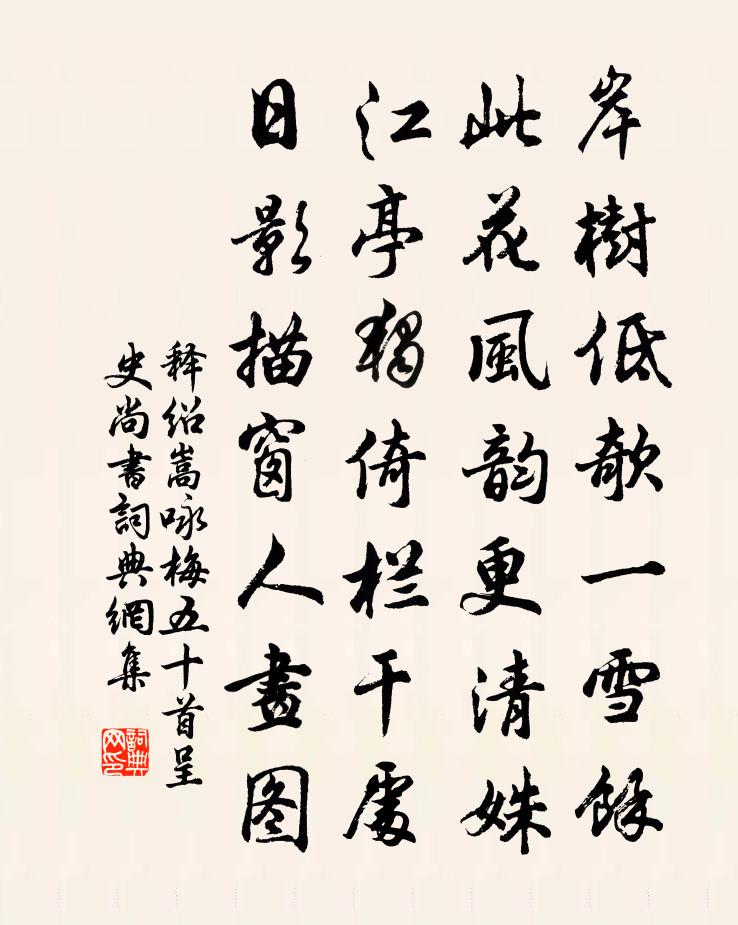 岸樹低欹一雪餘
此花風韵更清姝
江亭獨倚栏干處
日影描窗人畫图
释绍嵩咏梅五十首呈
史尚書詞典網集
詞典
网印